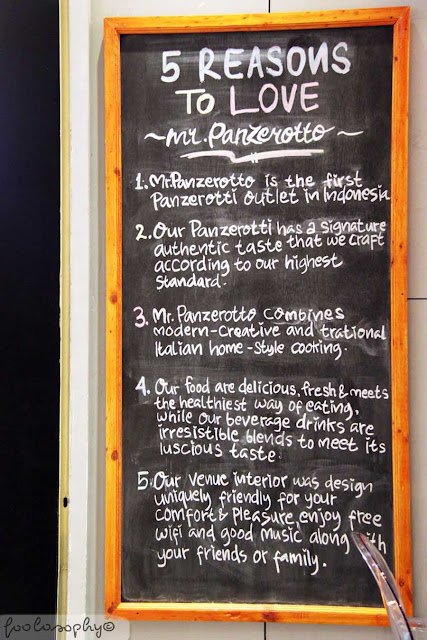 5 REASONS
TO LOVE
~Mr. Panzerotto~
1. Mr.Panzerotto is the first
Panzerotti outlet in Indonesia
2. Our Panzerotti has a signature
authentic taste that we craft
according to our highest
standard.
3. Mr. Panzerotto combines
modern-creative and trational
Italian home-style cooking.
4. Our food are delicious, fresh & meets
the healthiest way of eating,
while our beverage drinks are
irresistible blends to meet its
luscious taste.
5. Our venue interior was design
uniquely friendly for your
comfort & pleasure, enjoy free
wifi and good music along with
your friends or family.
foolosophy©